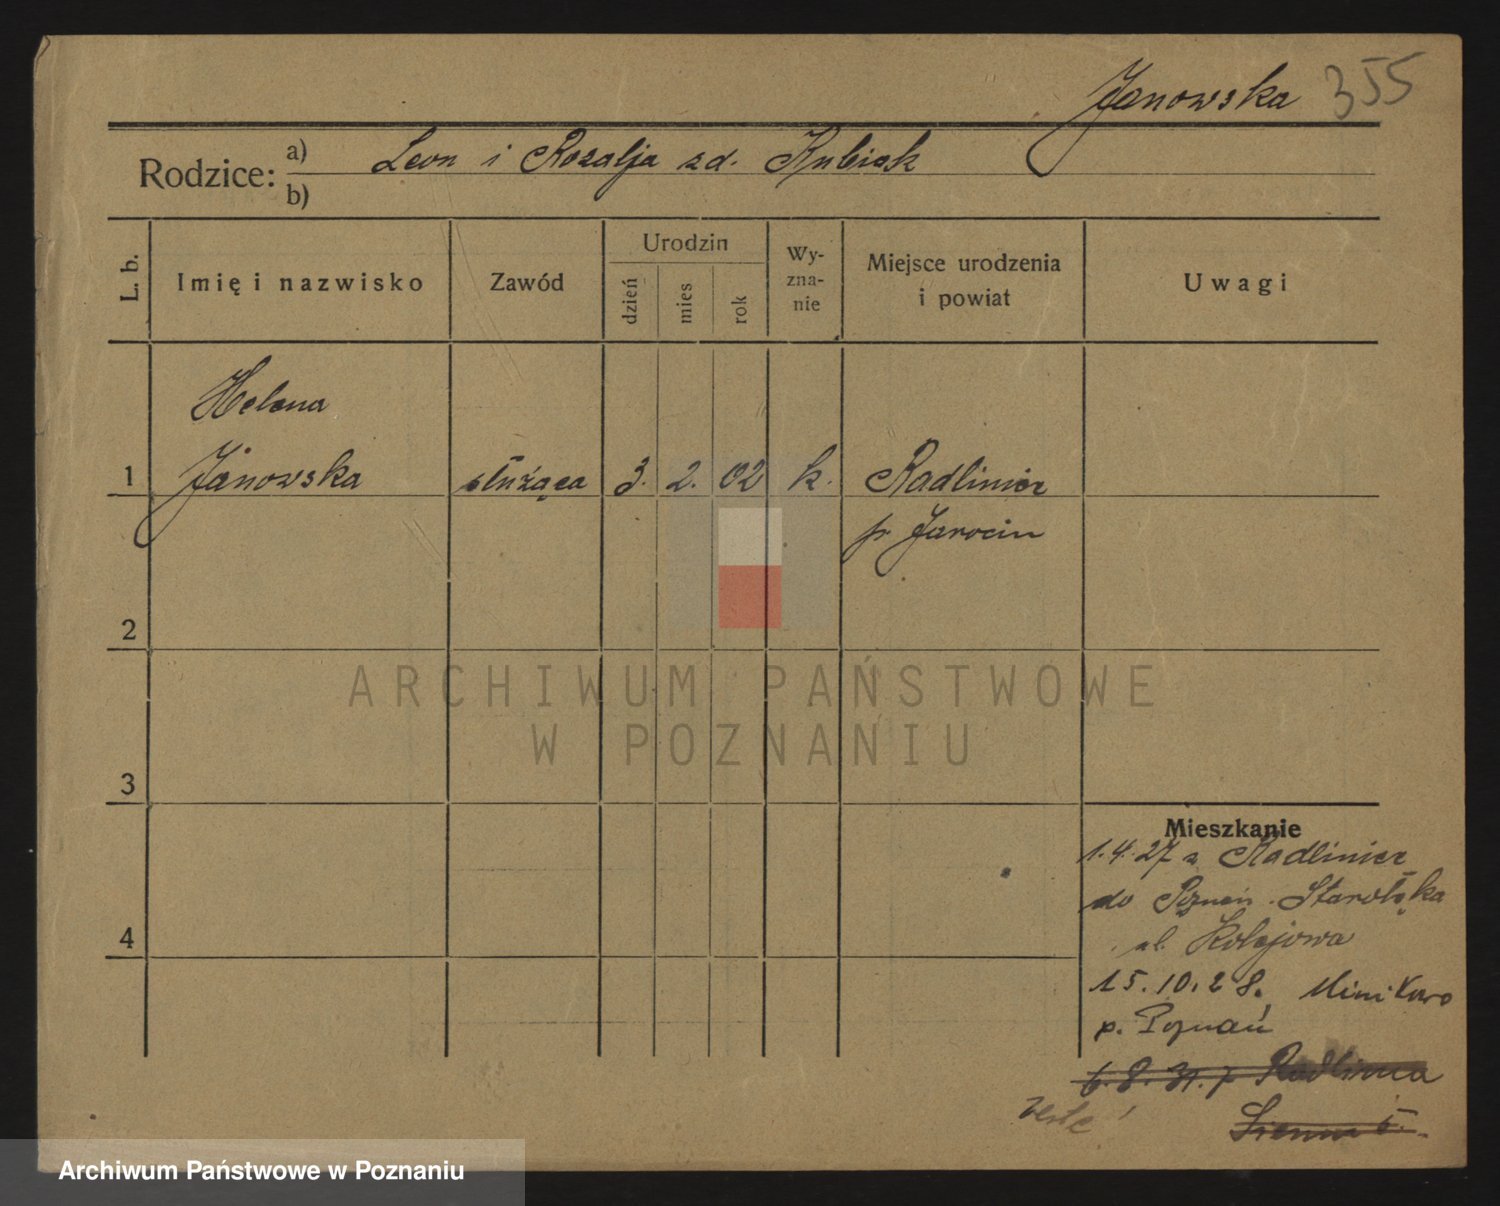 Janowska 355
Rodzice: a) Leon i Rozalja zd. Kubiak
b)
L. b. Imię i nazwisko Zawód Urodzin dzień mies rok Wy-zna-nie Miejsce urodzenia i powiat Uwagi
Helena
1 Janowska służąca 3. 2. 02 k. Radliniec
p. Jarocin
2
ARCHIWUM PAŃSTWOWE
W POZNANIU
3
Mieszkanie
1.4.27 z Radliniec
do Poznań. Starołęka
ul. Kolejowa
4
15.10.28. Minikowo
p. Poznań
6.8.31. z Radlinca
Archiwum Państwowe w Poznaniu